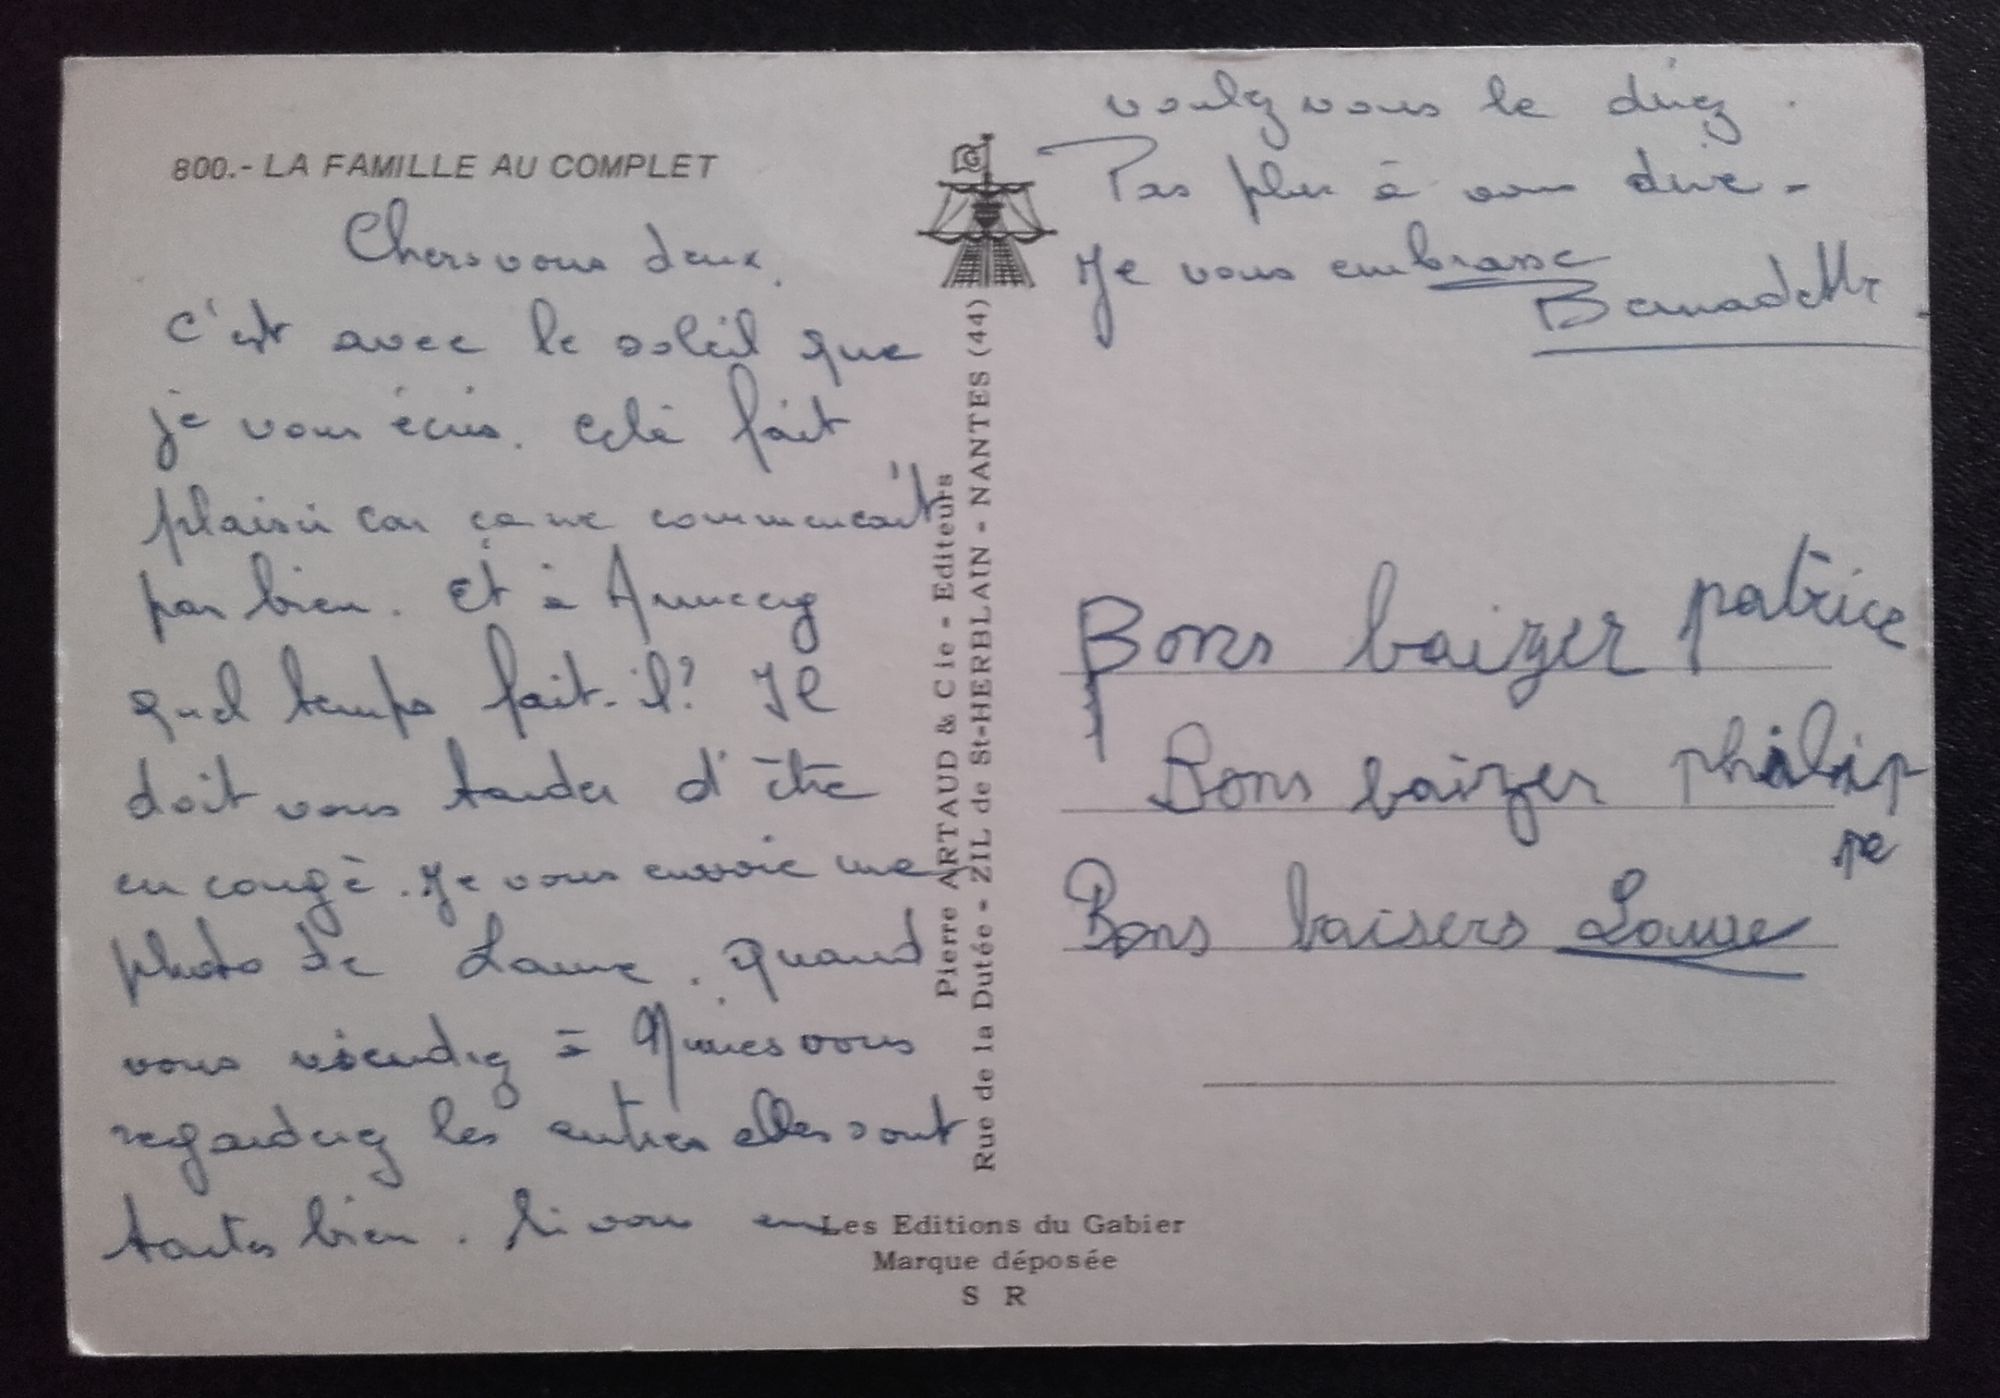 800.- LA FAMILLE AU COMPLET
Chers vous deux,
C'est avec le soleil que
je vous écris. Celà fait
plaisir car ça ne commencait
pas bien. Et à Annecy
quel temps fait-il? Il
doit vous tarder d'être
en congé. Je vous envoie une
photo de Laure. Quand
vous viendrez à Nîmes vous
regarderez les autres elles sont
toutes bien. Si vous en
voulez vous le direz.
Pas plus à vous dire -
Je vous embrasse
Bernadette.
Bons baizer patrice
Bons baizer philip
pe
Bons baisers Laure
Pierre ARTAUD & Cie - Editeurs
Rue de la Dutée - ZIL de St-HERBLAIN - NANTES (44)
Les Editions du Gabier
Marque déposée
S R